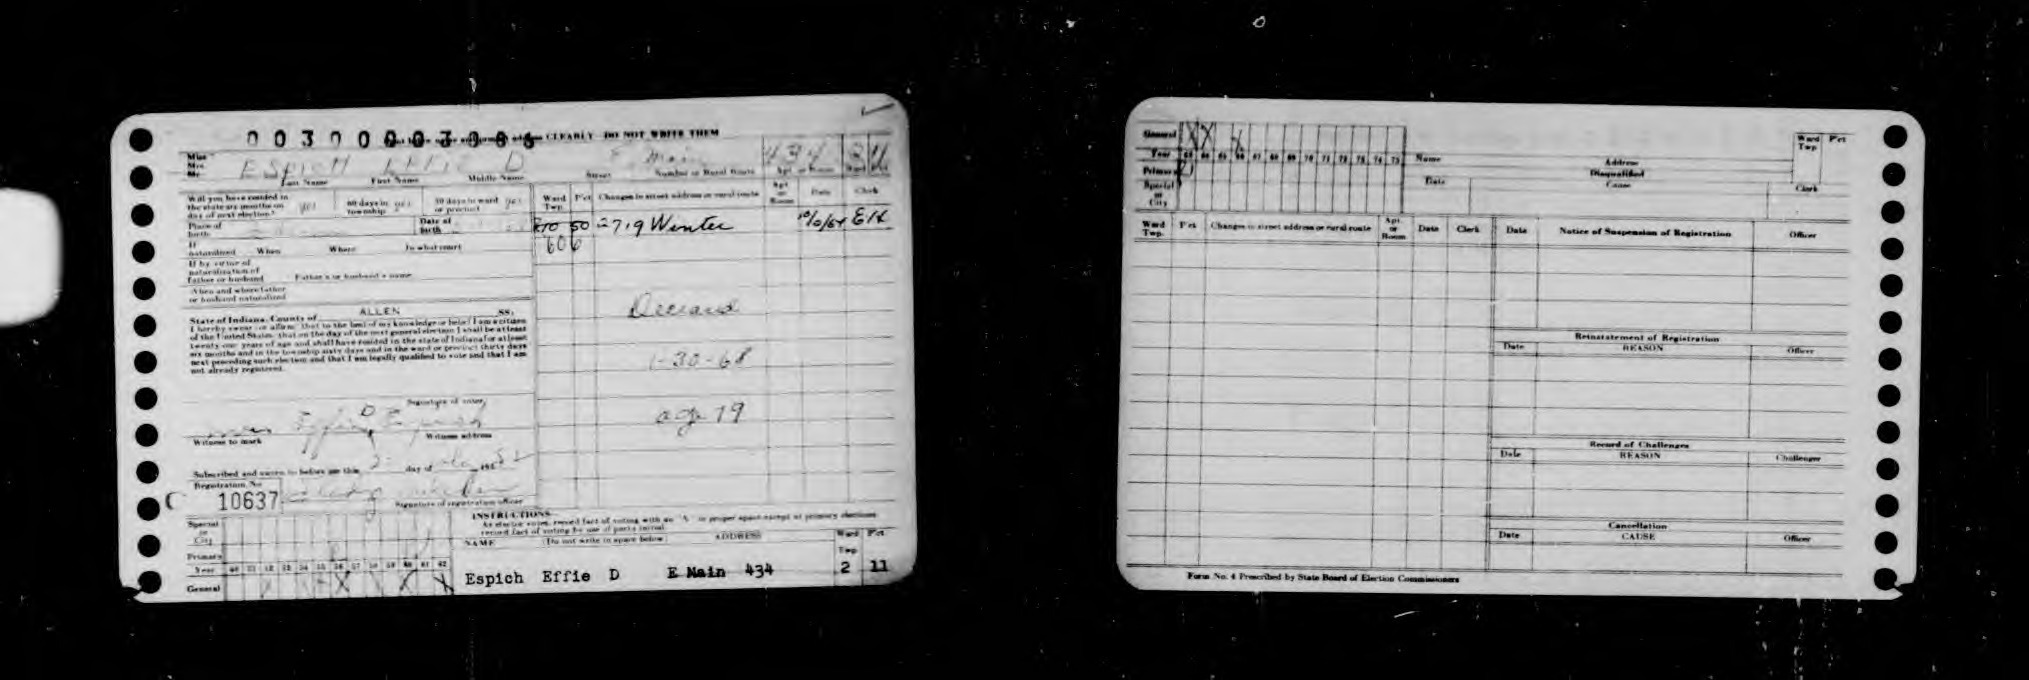 CLEARLY DO NOT WRITE THEM
Miss
Mrs.
Mr. ESPICH EFFIE D E Main 434
Last Name First Name Middle Name Street Number or Rural Route Apt. or Room Ward Pct
Will you have resided in
the state six months on
day of next election? yes 60 days in
township yes 30 days in ward
or precinct yes
Ward
Twp. Pct Changes in street address or rural route Apt
or
Room Date Clerk
Place of
birth Date of
birth
50 2719 Winter EH
606
If
naturalized When Where In what court
If by virtue of
naturalization of
father or husband Father's or husband's name
When and where father
or husband naturalized
State of Indiana, County of ALLEN SS:
I hereby swear (or affirm) that to the best of my knowledge or belief I am a citizen
of the United States, that on the day of the next general election I shall be at least
twenty-one years of age and shall have resided in the state of Indiana for at least
six months and in the township sixty days and in the ward or precinct thirty days
next preceding such election and that I am legally qualified to vote and that I am
not already registered.
Deceased
1-30-68
age 79
Signature of voter
Effie D Espich
Witness to mark Witness address
Subscribed and sworn to before me this day of
Registration No.
10637
Signature of registration officer
INSTRUCTIONS
As elector votes, record fact of voting with an "X" in proper space except at primary elections
record fact of voting by use of party initial.
Special
or
City
Primary
Year
General
NAME (Do not write in space below) ADDRESS Ward
Twp. Pct
Espich Effie D E Main 434 2 11
General X X X
Year 63 64 65 66 67 68 69 70 71 72 73 74 75
Primary
Special
or
City
Name Address
Ward
Twp Pct
Disqualified
Date Cause Clerk
Ward
Twp. Pct Changes in street address or rural route Apt
or
Room Date Clerk
Date Notice of Suspension of Registration Officer
Reinstatement of Registration
Date REASON Officer
Record of Challenges
Date REASON Challenger
Cancellation
Date CAUSE Officer
Form No. 4 Prescribed by State Board of Election Commissioners